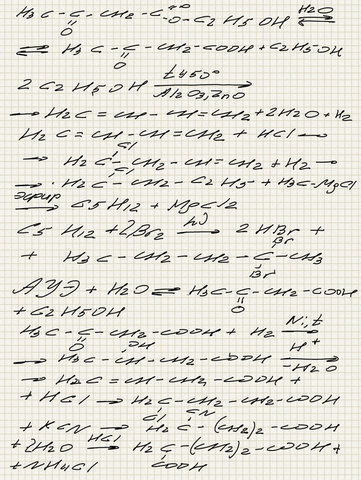 H3C - C - CH2 - C=O - O - C2H5OH H2O ⇌
O
⇌ H3C - C - CH2 - COOH + C2H5OH
O
2 C2H5OH t 450° Al2O3, ZnO
→ H2C = CH - CH = CH2 + 2H2O + H2
H2C = CH - CH = CH2 + HCl →
Cl
→ H2C - CH2 - CH = CH2 + H2 →
Cl
→ H2C - CH2 - C2H5 + H3C-MgCl
эфир → C5H12 + MgCl2
C5H12 + 2Br2 hν → 2HBr +
Br
+ H3C - CH2 - CH2 - C - CH3
Br
АУЭ + H2O ⇌ H3C - C - CH2 - COOH
O
+ C2H5OH
H3C - C - CH2 - COOH + H2 Ni, t →
O
OH
→ H3C - CH - CH2 - COOH H+ -H2O
→ H2C = CH - CH2 - COOH +
+ HCl → H2C - CH2 - CH2 - COOH
Cl
CN
+ KCN → H2C - (CH2)2 - COOH
+ 2H2O HCl → H2C - (CH2)2 - COOH +
COOH
+ NH4Cl